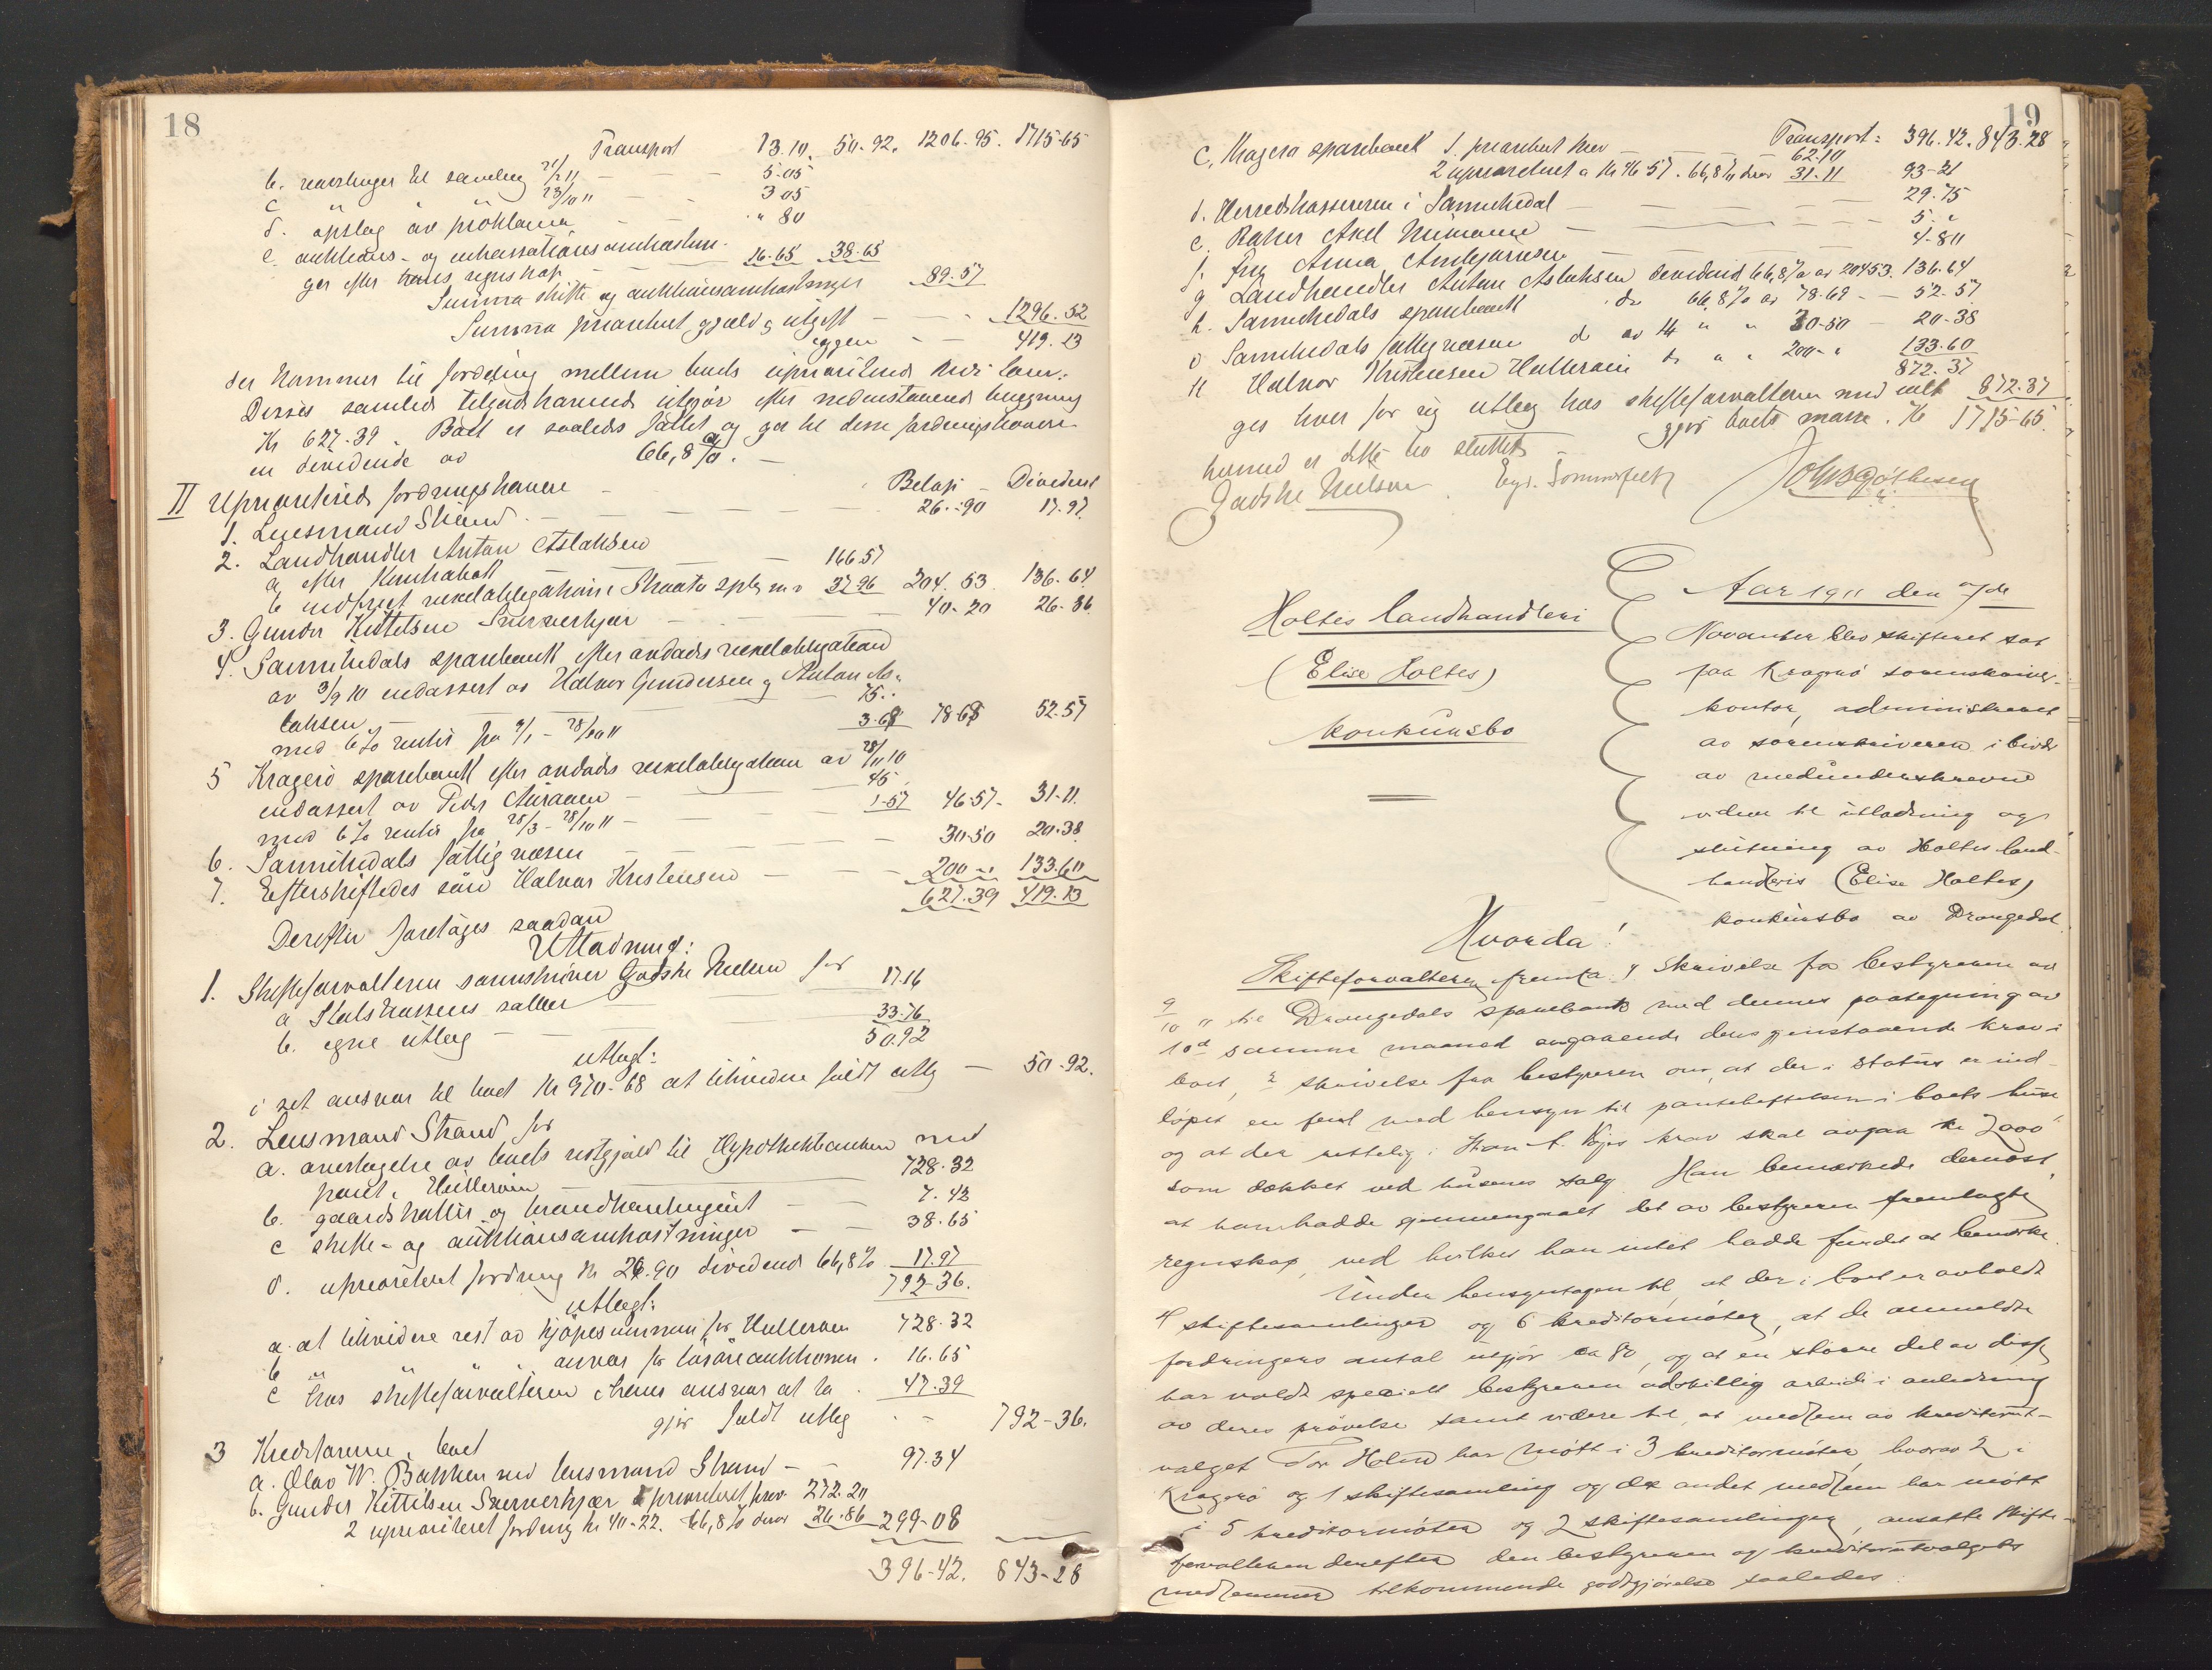 18
Transport 73.10. 50-92. 1206-95. 1715-65
b. reiseutlæg til samling 21/2 11 5-05
c " " 23/10 11 3 05
d. opslag av proklama " 80
e. auktions- og omkostnin
ger efter hans regnskap 16-65 38-65
Summa skifte og auktionsomkostninger 89-57
Summa prioritert gjæld & utgift 1296-52
igjen 419-13
der kommer til fordeling mellem boets uprioriterte kreditorer.
Disses samlede tilgodehavende utgjør efter nedenstaaende
Kr 627-39. Boet er saaledes fallit og gir til disse fordringshavere
en dividende av 66,8%.
II Uprioriterte fordringshavere Beløp Dividend
1. Lensmand Strand 26-90 17-97
2. Landhandler Anton Aslaksen
a efter Kontrabok 166 57
b indfriet vekselobligation i Skaatø spbk m v 37-96 204-53 136-64
3. Gunder Kittelsen Snerverkjær 40-20 26-86
4. Sannikedals sparebank efter andels vekselobligation
av 3/9 10 endossert av Halvor Gundersen & Anton As-
laksen 75-
med 6% renter fra 9/1 - 28/10 11 3-68 78-68 52-57
5 Kragerø sparebank efter andels vekselobligation av 28/11 10
endossert av Peder Aaraaen 45
med 6% renter fra 28/3 - 28/10 11 1-57 46-57 31-11
6. Sannikedals fattigvæsen 30-50 20-38
7. Efterskiftedes søn Halvor Kristensen 200 - 133-60
627-39 419-13
Derefter foretages saadan
Utlodning:
1. Skifteforvalteren sorenskriver Gadske Nielsen for
a Statskassens sakler 17-16
b. egne utlæg 33-76
50.92
utlagt:
i sit ansvar til boet Kr 970-68 at likvidere fuldt utlæg 50-92.
2. Lensmand Strand for
a. overtagelse av boets restgjæld til Hypothekbanken med
pant i Hulleraen 728-32
b. gaardskatter og brandkontingent 7-42
c skifte- og auktionsomkostninger 38-65
d. uprioritert fordring Kr 26.90 dividend 66,8% 17-97
792-36.
utlagt:
a. at likvidere rest av kjøpesummen for Hulleraen 728-32
b " " " ansvar for løsøreauktionen 16-65
c hos skifteforvalteren i hans ansvar at ta 47-39
gjør fuldt utlæg 792-36.
3 Kreditorerne i boet
a. Olav W. Bakken ved lensmand Strand 97-34
b. Gunder Kittilsen Snerverkjær 1 prioritert krav 272-20
2 uprioritert fordring kr 40-22. 66,8% derav 26-86 299-08
396-42. 843-28
19
Transport: 396-42. 843-28
c. Kragerø sparebank 1. prioritert krav 62-10
2 uprioritert a Kr 46 57. 66,8% derav 31-11 93-21
d. Herredskassereren i Sannikedal 29-75
e. Baker Axel Neumann 5-"
f. Frk Anna Ambjørnsen 4-80
g Landhandler Anton Aslaksen dividend 66,8% av 204 53. 136-64
h. Sannikedals sparebank do 66,8% av 78-69 - 52-57
i Sannikedals fattigvæsen do av " " 30-50 - 20-38
k Halvor Kristensen Hulleraen do " " 200-" 133-60
872-37
ges hver for sig utlæg hos skifteforvalteren med ialt 872-37
gjør boets masse. Kr 1715-65.
hermed er dette bo sluttet
Gadske Nielsen Eyv. Sommerfelt
Holtes landhandleri
(Elise Holtes)
konkursbo
Aar 1911 den 7de
November blev skifteret sat
paa Kragerø sorenskriver-
kontor, administreret
av sorenskriveren i bivær
av medunderskrevne
vidner til utlodning og
slutning av Holtes land-
handleris (Elise Holtes)
konkursbo av Drangedal
Hvorda!
Skifteforvalteren fremla 1 skrivelse fra bestyreren av
9/10 11 til Drangedals sparebank med dennes paategning av
10d samme maaned angaaende dens gjenstaaende krav i
boet, 2 skrivelse fra bestyreren om, at der i status er ind-
løpet en feil med hensyn til panteheftelsen i boets huse
og at der rettelig i krav skal avgaa kr 2000
som dækket ved husenes salg. Han bemerkede dernæst,
at han hadde gjennemgaaet det av bestyreren fremlagte
regnskap, ved hvilket han intet hadde fundet at bemerke.
Under hensyntagen til, at der i boet er avholdt
4 skiftesamlinger og 6 kreditormøter, at de anmeldte
fordringers antal utgjør ca 80, og at en større del av disse
har voldt specielt bestyreren adskillig arbeide i anledning
av deres prøvelse samt videre til, at medlem av kreditorut-
valget Tor Holen har møtt i 3 kreditormøter, hvorav 2 i
Kragerø og 1 skiftesamling og det andet medlem har møtt
i 5 kreditormøter og 2 skiftesamlinger, ansatte skifte-
forvalteren derefter den bestyreren og kreditorutvalgets
medlemmer tilkommende godtgjørelse saaledes: